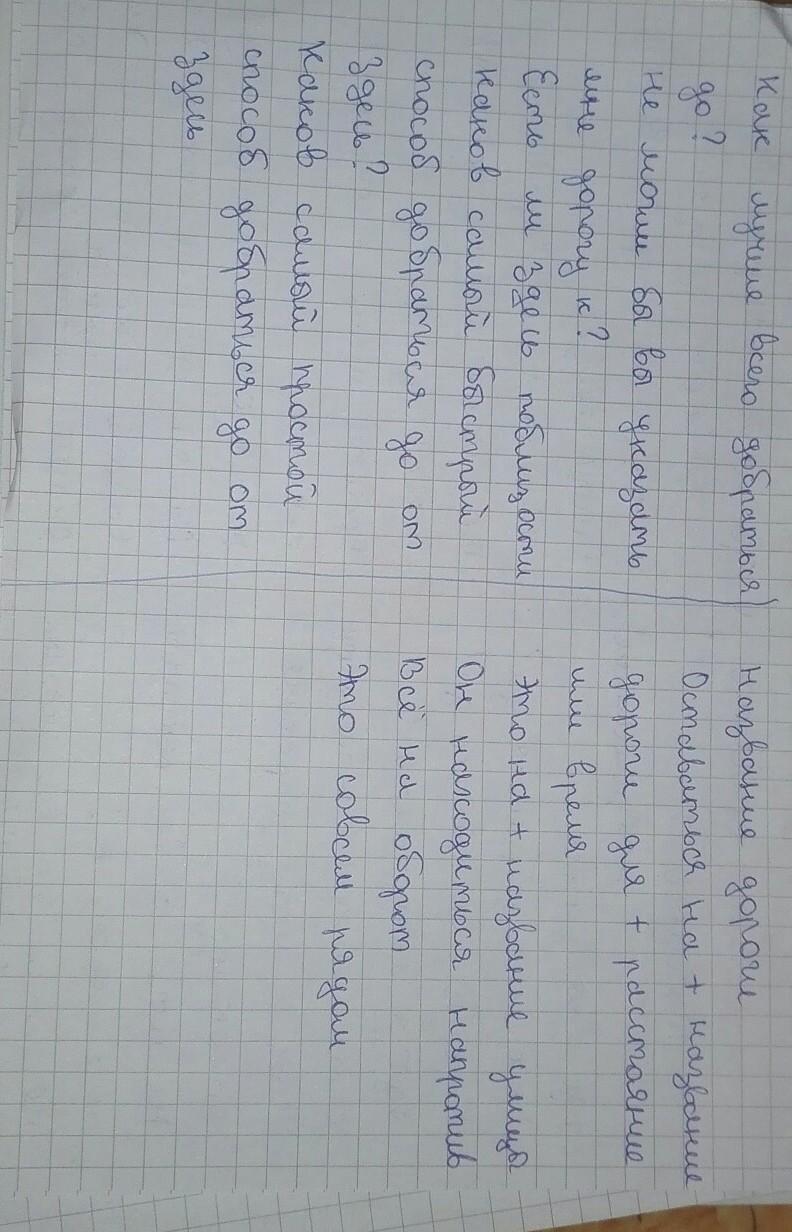 Как лучше всего добраться
до?
Не могли бы вы указать
мне дорогу к?
Есть ли здесь поблизости
Каков самый быстрый
способ добраться до от
Здесь?
Каков самый простой
способ добраться до от
Здесь
Название дороги
Оставаться на + название
дороги для + расстояние
или время
Это на + название улицы
Он находиться напротив
Всё на оборот
Это совсем рядом